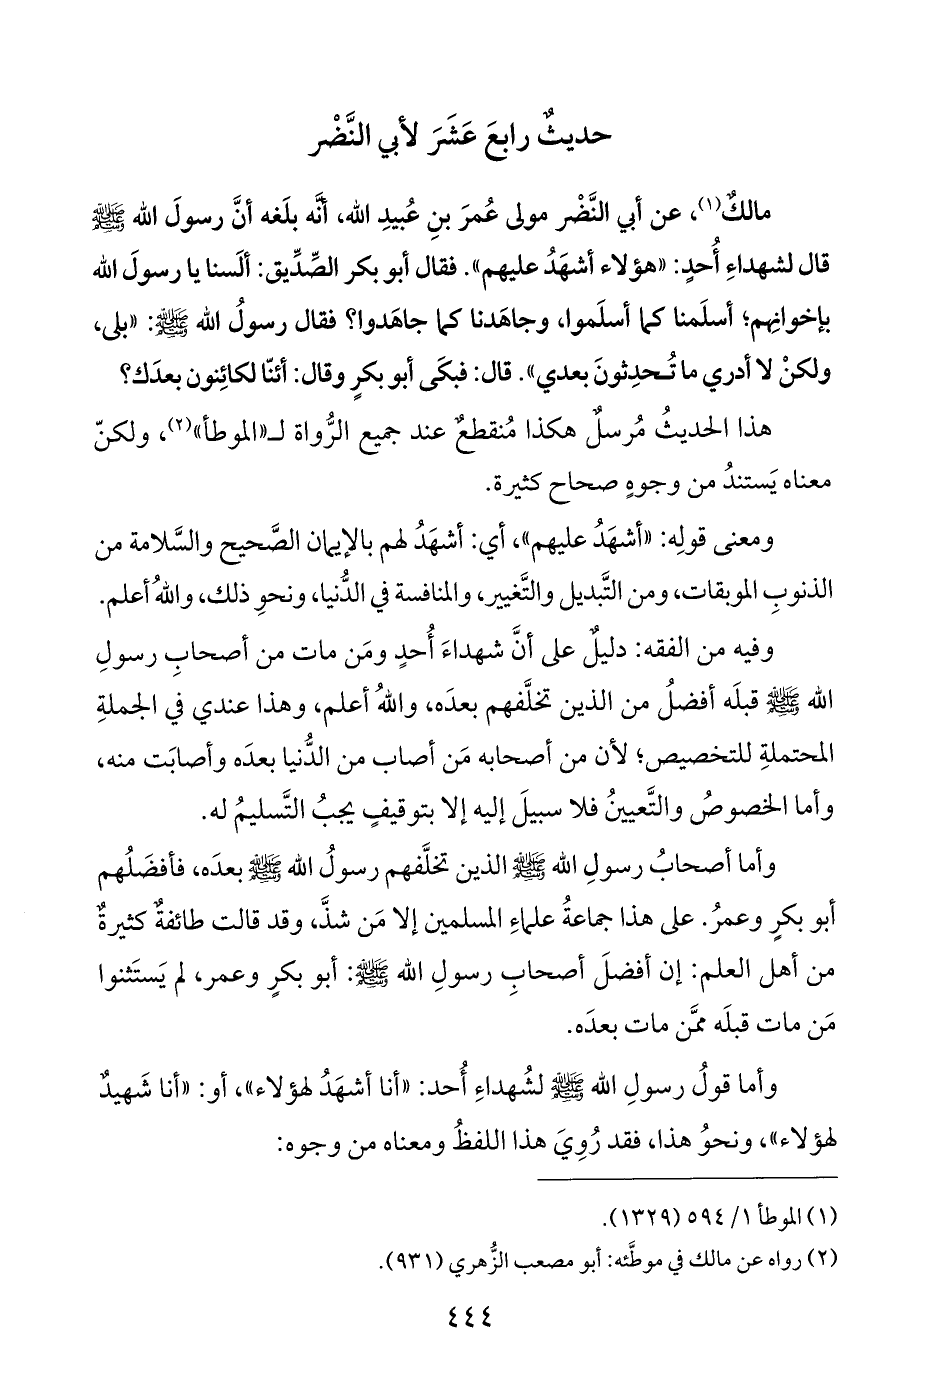 حديثٌ رابعَ عَشَرَ لأبي النَّضْر
مالكٌ(١)، عن أبي النَّضْر مولى عُمرَ بنِ عُبيدِ الله، أنَّه بلَغه أنَّ رسولَ الله ﷺ
قال لشهداءِ أُحدٍ: «هؤلاء أشهَدُ عليهم». فقال أبو بكر الصِّدِّيق: ألَسنا يا رسولَ الله
بإخوانِهم؛ أسلَمنا كما أسلَموا، وجاهَدنا كما جاهَدوا؟ فقال رسولُ الله ﷺ: «بلى،
ولكنْ لا أدري ما تُحدِثونَ بعدي». قال: فبكَى أبو بكرٍ وقال: أئنّا لكائِنون بعدَك؟
هذا الحديثُ مُرسلٌ هكذا مُنقطعٌ عند جميع الرُّواة لـ«الموطأ»(٢)، ولكنّ
معناه يَستندُ من وجوهٍ صحاح كثيرة.
ومعنى قولِه: «أشهَدُ عليهم»، أي: أشهَدُ لهم بالإيمان الصَّحيح والسَّلامة من
الذنوبِ الموبقات، ومن التَّبديل والتَّغيير، والمنافسة في الدُّنيا، ونحوِ ذلك، واللهُ أعلم.
وفيه من الفقه: دليلٌ على أنَّ شهداءَ أُحدٍ ومَن مات من أصحابِ رسولِ
الله ﷺ قبلَه أفضلُ من الذين تخلَّفهم بعدَه، واللهُ أعلم، وهذا عندي في الجملةِ
المحتملةِ للتخصيص؛ لأن من أصحابه مَن أصاب من الدُّنيا بعدَه وأصابَت منه،
وأما الخصوصُ والتَّعيينُ فلا سبيلَ إليه إلا بتوقيفٍ يجبُ التَّسليمُ له.
وأما أصحابُ رسولِ الله ﷺ الذين تخلَّفهم رسولُ الله ﷺ بعدَه، فأفضَلُهم
أبو بكرٍ وعمرُ. على هذا جماعةُ علماءِ المسلمين إلا مَن شذَّ، وقد قالت طائفةٌ كثيرةٌ
من أهل العلم: إن أفضلَ أصحابِ رسولِ الله ﷺ: أبو بكرٍ وعمر، لم يَستَثنوا
مَن مات قبلَه ممَّن مات بعدَه.
وأما قولُ رسولِ الله ﷺ لشُهداءِ أُحد: «أنا أشهَدُ لهؤلاء»، أو: «أنا شَهيدٌ
لهؤلاء»، ونحوُ هذا، فقد رُوِيَ هذا اللفظُ ومعناه من وجوه:
(١) الموطأ ١/ ٥٩٤ (١٣٢٩).
(٢) رواه عن مالك في موطَّئه: أبو مصعب الزُّهري (٩٣١).
٤٤٤